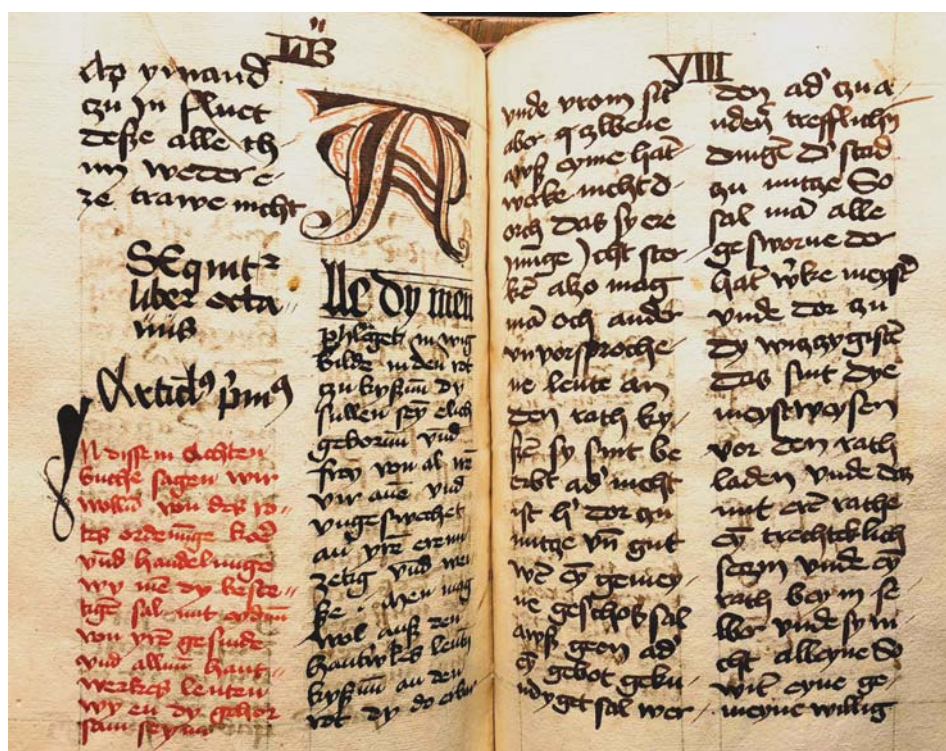 LIB
zu Jn fluct
desze alle th
un weder e-
ze trawe nicht
SEquitr
liber octa
uus
Articlus pimus
JN dissem Achten
buche sagen wir
wollun von des ro-
tes ordenunge koer
vnd handelunge
wy me dy beste-
tigen sal mit
von yren gesinde
vnd allun hant-
werkes leuten
wy en dy gehor
sam seyn
Alle dy men
bilde in den rot
zu kysun dy
sullen seyn elich
geborun vnd
frey von al
vnd
vngeswechet
an yren eren
zetig vnd wei
ke. Men mag
wol aus den
hantwkes leuten
kysun an den
rot dy do erbar
VIII
vnde vrom sit
aber zwene
aws eyme hat-
werke nicht d-
orch das sy ere
ynnige icht ster
ken also mag
ma och ander
vnvorsproche-
ne leute an
den rath ky-
sen sy sint be
erbt ad nicht
ist h dor zu
nutze vn gut
wer eyn gemey-
ne geschos sal
aws geen ad
eyn gebot geku-
ndyget sal wer-
den ad zu a-
nden trefflichn
dingen d stad
zu nutze So
sal ma alle
gesworne der
hat wke meyst
vnde dor zu
dy wizzygisten
das sint dye
meystweysen
vor den rath
laden vnde das
mit ere rathe
eyn trechteklich
seczen vnde eyn
rath bey in se
lber vnde sy ni
cht alleyne So
wirt eyne ge-
meyne willig